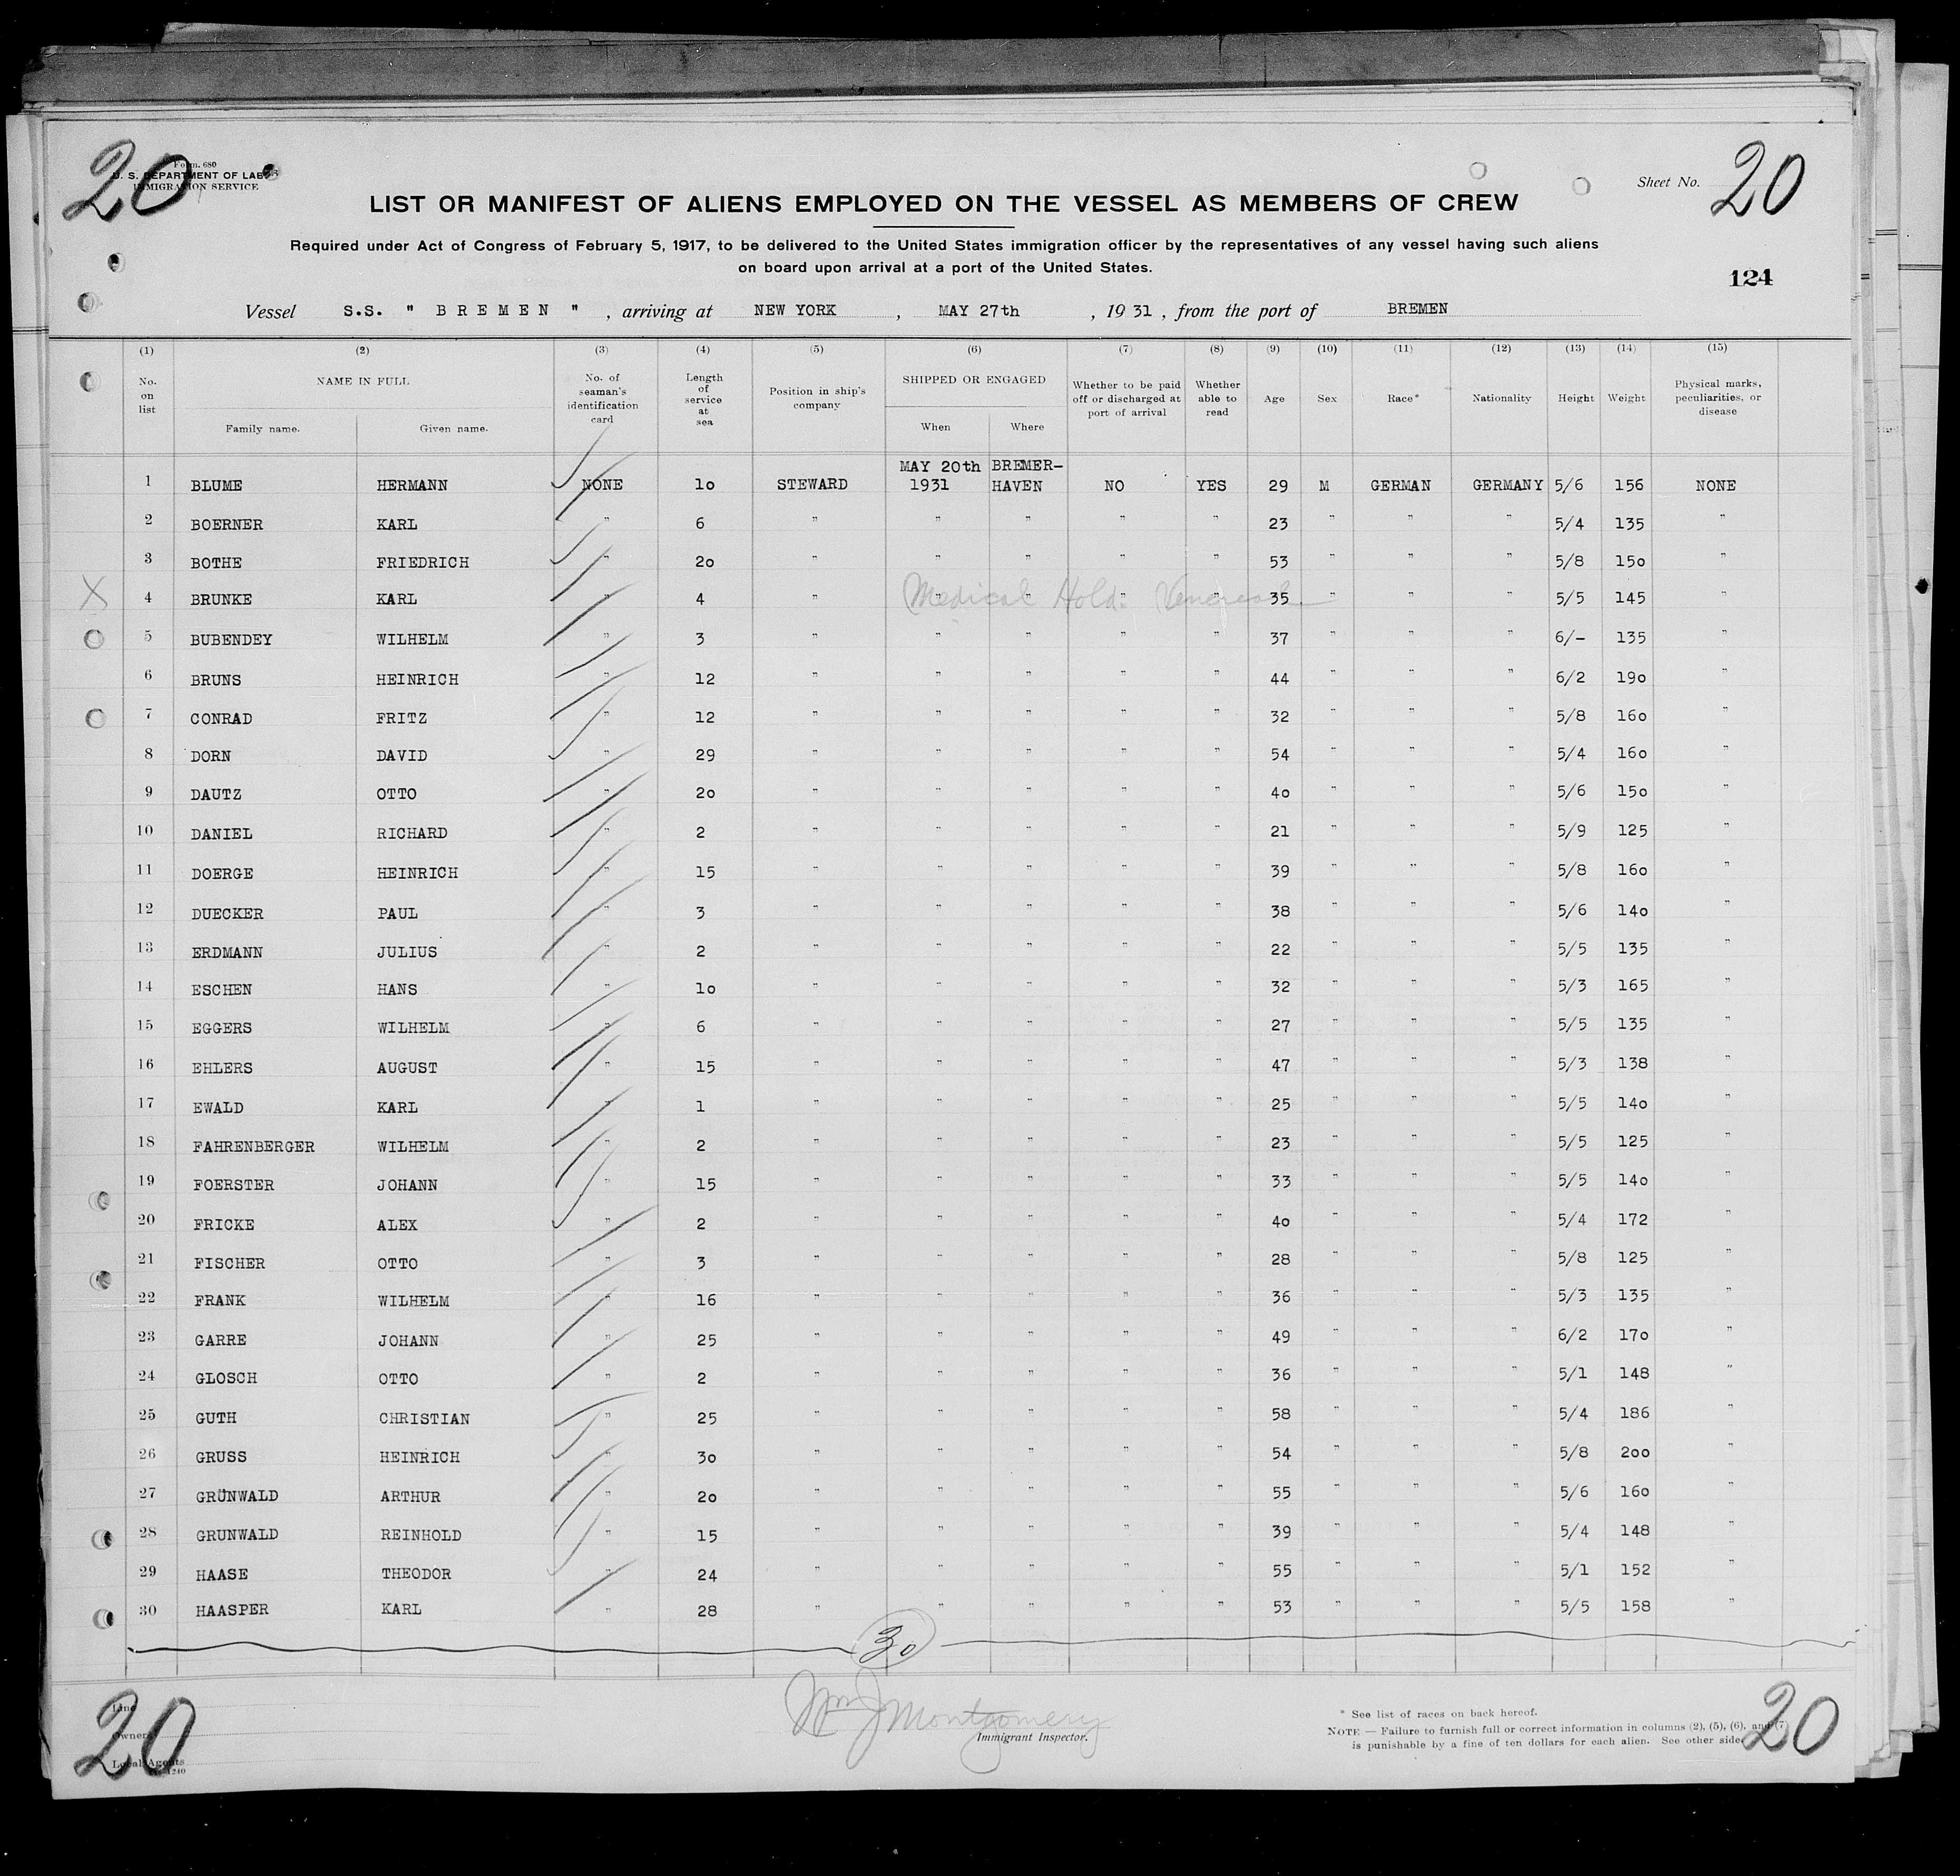 20
Form. 680
U. S. DEPARTMENT OF LABOR
IMMIGRATION SERVICE
Sheet No. 20
LIST OR MANIFEST OF ALIENS EMPLOYED ON THE VESSEL AS MEMBERS OF CREW
Required under Act of Congress of February 5, 1917, to be delivered to the United States immigration officer by the representatives of any vessel having such aliens
on board upon arrival at a port of the United States.
124
Vessel S.S. " BREMEN " , arriving at NEW YORK , MAY 27th , 1931 , from the port of BREMEN
(1) (2) (3) (4) (5) (6) (7) (8) (9) (10) (11) (12) (13) (14) (15)
No. on list NAME IN FULL Family name. Given name. No. of seaman's identification card Length of service at sea Position in ship's company SHIPPED OR ENGAGED When Where Whether to be paid off or discharged at port of arrival Whether able to read Age Sex Race* Nationality Height Weight Physical marks, peculiarities, or disease
MAY 20th BREMER-
1 BLUME HERMANN NONE 10 STEWARD 1931 HAVEN NO YES 29 M GERMAN GERMANY 5/6 156 NONE
2 BOERNER KARL " 6 " " " " " 23 " " " 5/4 135 "
3 BOTHE FRIEDRICH " 20 " " " " " 53 " " " 5/8 150 "
X 4 BRUNKE KARL " 4 " " " " " 35 " " " 5/5 145 "
Medical Hold.
5 BUBENDEY WILHELM " 3 " " " " " 37 " " " 6/- 135 "
6 BRUNS HEINRICH " 12 " " " " " 44 " " " 6/2 190 "
7 CONRAD FRITZ " 12 " " " " " 32 " " " 5/8 160 "
8 DORN DAVID " 29 " " " " " 54 " " " 5/4 160 "
9 DAUTZ OTTO " 20 " " " " " 40 " " " 5/6 150 "
10 DANIEL RICHARD " 2 " " " " " 21 " " " 5/9 125 "
11 DOERGE HEINRICH " 15 " " " " " 39 " " " 5/8 160 "
12 DUECKER PAUL " 3 " " " " " 38 " " " 5/6 140 "
13 ERDMANN JULIUS " 2 " " " " " 22 " " " 5/5 135 "
14 ESCHEN HANS " 10 " " " " " 32 " " " 5/3 165 "
15 EGGERS WILHELM " 6 " " " " " 27 " " " 5/5 135 "
16 EHLERS AUGUST " 15 " " " " " 47 " " " 5/3 138 "
17 EWALD KARL " 1 " " " " " 25 " " " 5/5 140 "
18 FAHRENBERGER WILHELM " 2 " " " " " 23 " " " 5/5 125 "
19 FOERSTER JOHANN " 15 " " " " " 33 " " " 5/5 140 "
20 FRICKE ALEX " 2 " " " " " 40 " " " 5/4 172 "
21 FISCHER OTTO " 3 " " " " " 28 " " " 5/8 125 "
22 FRANK WILHELM " 16 " " " " " 36 " " " 5/3 135 "
23 GARRE JOHANN " 25 " " " " " 49 " " " 6/2 170 "
24 GLOSCH OTTO " 2 " " " " " 36 " " " 5/1 148 "
25 GUTH CHRISTIAN " 25 " " " " " 58 " " " 5/4 186 "
26 GRUSS HEINRICH " 30 " " " " " 54 " " " 5/8 200 "
27 GRÜNWALD ARTHUR " 20 " " " " " 55 " " " 5/6 160 "
28 GRUNWALD REINHOLD " 15 " " " " " 39 " " " 5/4 148 "
29 HAASE THEODOR " 24 " " " " " 55 " " " 5/1 152 "
30 HAASPER KARL " 28 " " " " " 53 " " " 5/5 158 "
30
20
Line
Owner
Local Agents
1240
Wm J Montgomery
Immigrant Inspector.
* See list of races on back hereof.
NOTE — Failure to furnish full or correct information in columns (2), (5), (6), and (7)
is punishable by a fine of ten dollars for each alien. See other side.
20